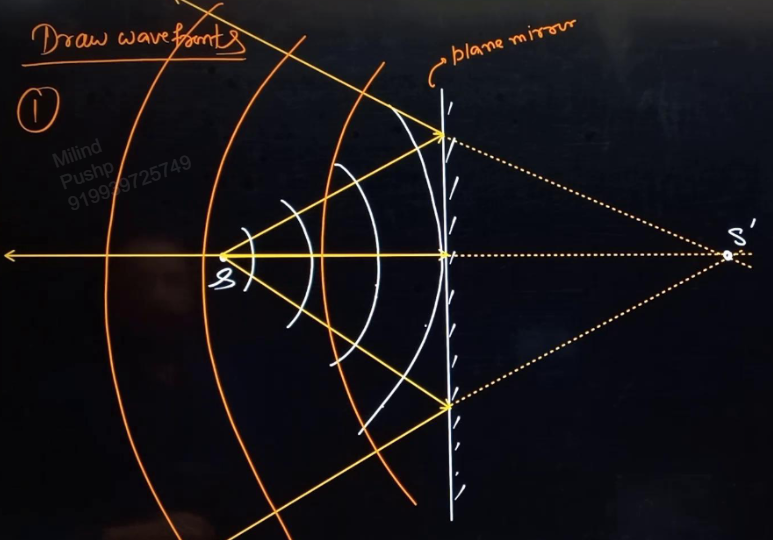 Draw wavefronts
plane mirror
1
Milind
Pushp
919939725749
S
S'